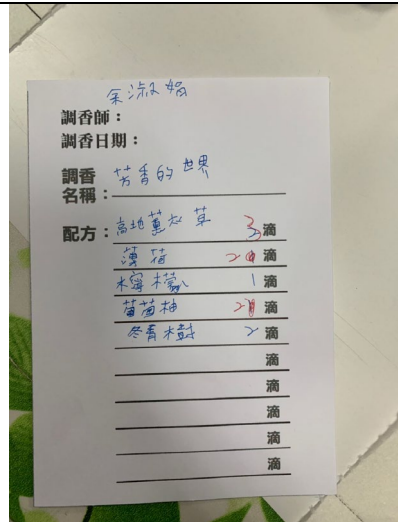 余淑娟
調香師：
調香日期：
調香名稱：芳香的世界
配方：高地薰衣草 3 滴
薄荷 20 滴
檸檬 1 滴
葡萄柚 21 滴
冬青木樹 2 滴
滴
滴
滴
滴
滴